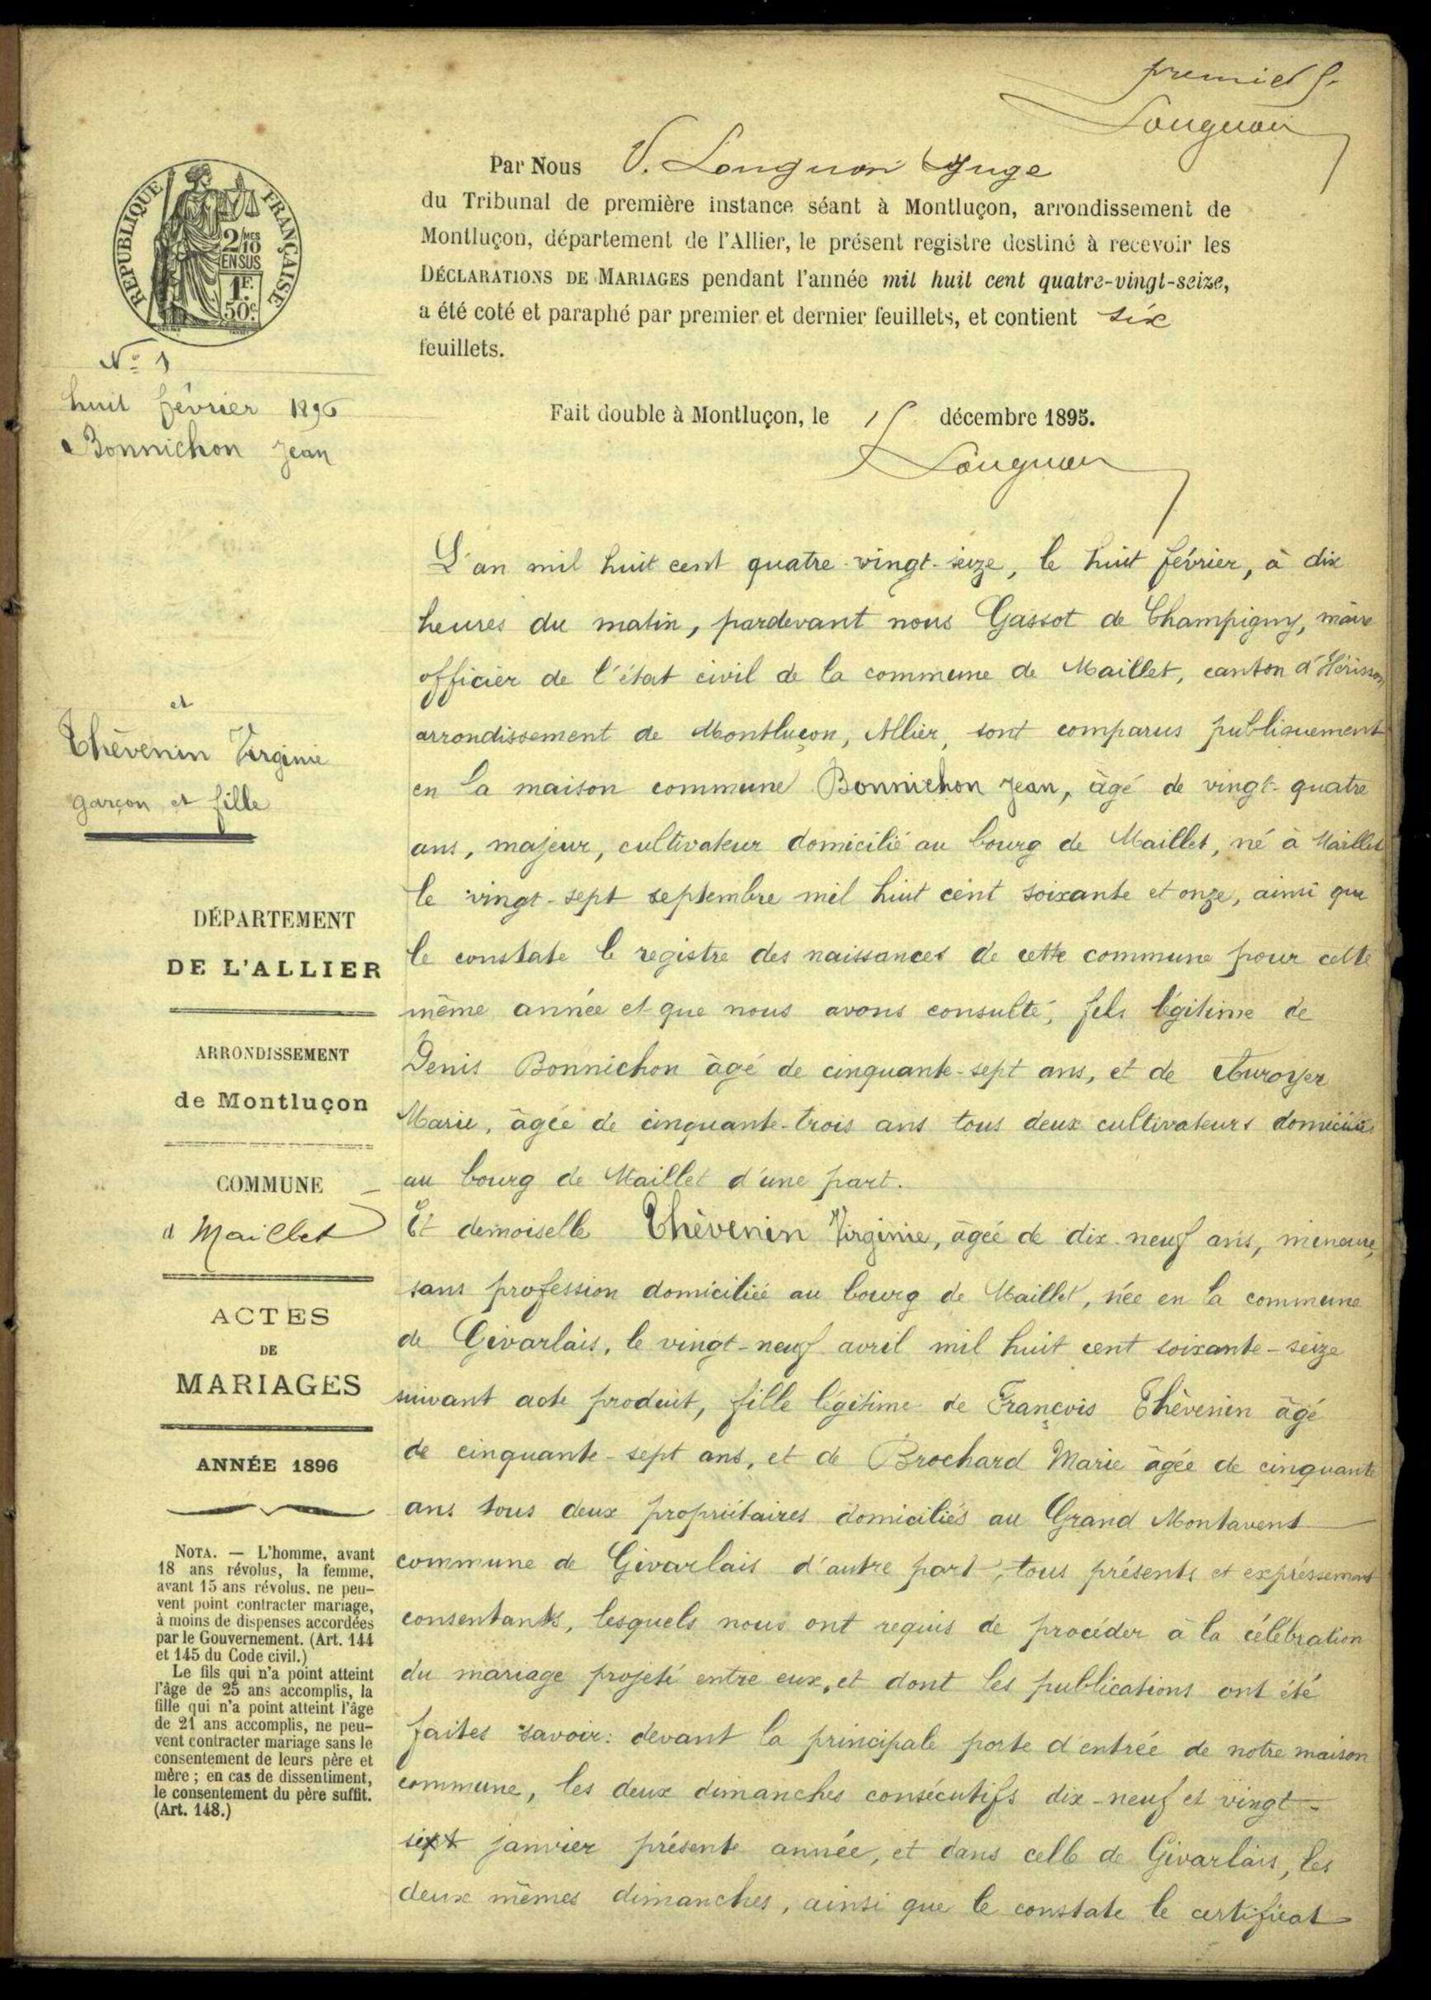 premier f.
Longuon
Par Nous V. Longuon Juge
du Tribunal de première instance séant à Montluçon, arrondissement de
Montluçon, département de l'Allier, le présent registre destiné à recevoir les
DÉCLARATIONS DE MARIAGES pendant l'année mil huit cent quatre-vingt-seize,
a été coté et paraphé par premier et dernier feuillets, et contient six
feuillets.
Fait double à Montluçon, le décembre 1895.
Longuon
RÉPUBLIQUE FRANÇAISE
2/10 MES
EN SUS
1F.
50c.
No 1
huit février 1896
Bonnichon Jean
et
Thévenin Virginie
garçon et fille
DÉPARTEMENT
DE L'ALLIER
ARRONDISSEMENT
de Montluçon
COMMUNE
d Maillet
ACTES
DE
MARIAGES
ANNÉE 1896
NOTA. — L'homme, avant
18 ans révolus, la femme,
avant 15 ans révolus, ne peu-
vent point contracter mariage,
à moins de dispenses accordées
par le Gouvernement. (Art. 144
et 145 du Code civil.)
Le fils qui n'a point atteint
l'âge de 25 ans accomplis, la
fille qui n'a point atteint l'âge
de 21 ans accomplis, ne peu-
vent contracter mariage sans le
consentement de leurs père et
mère ; en cas de dissentiment,
le consentement du père suffit.
(Art. 148.)
L'an mil huit cent quatre-vingt-seize, le huit février, à dix
heures du matin, pardevant nous Gassot de Champigny, maire
officier de l'état civil de la commune de Maillet, canton d'Hérisson
arrondissement de Montluçon, Allier, sont comparus publiquement
en la maison commune Bonnichon Jean, âgé de vingt-quatre
ans, majeur, cultivateur domicilié au bourg de Maillet, né à Maillet
le vingt-sept septembre mil huit cent soixante et onze, ainsi que
le constate le registre des naissances de cette commune pour cette
même année et que nous avons consulté, fils légitime de
Denis Bonnichon âgé de cinquante-sept ans, et de Auroyer
Marie, âgée de cinquante-trois ans tous deux cultivateurs domiciliés
au bourg de Maillet d'une part.
Et demoiselle Thévenin Virginie, âgée de dix-neuf ans, mineure,
sans profession domiciliée au bourg de Maillet, née en la commune
de Givarlais, le vingt-neuf avril mil huit cent soixante-seize
suivant acte produit, fille légitime de François Thévenin âgé
de cinquante-sept ans, et de Brochard Marie âgée de cinquante
ans tous deux propriétaires domiciliés au Grand Montavent
commune de Givarlais d'autre part, tous présents et expréssement
consentants, lesquels nous ont requis de procéder à la célébration
du mariage projeté entre eux, et dont les publications ont été
faites savoir: devant la principale porte d'entrée de notre maison
commune, les deux dimanches consécutifs dix-neuf et vingt-
janvier présente année, et dans celle de Givarlais, les
deux mêmes dimanches, ainsi que le constate le certificat